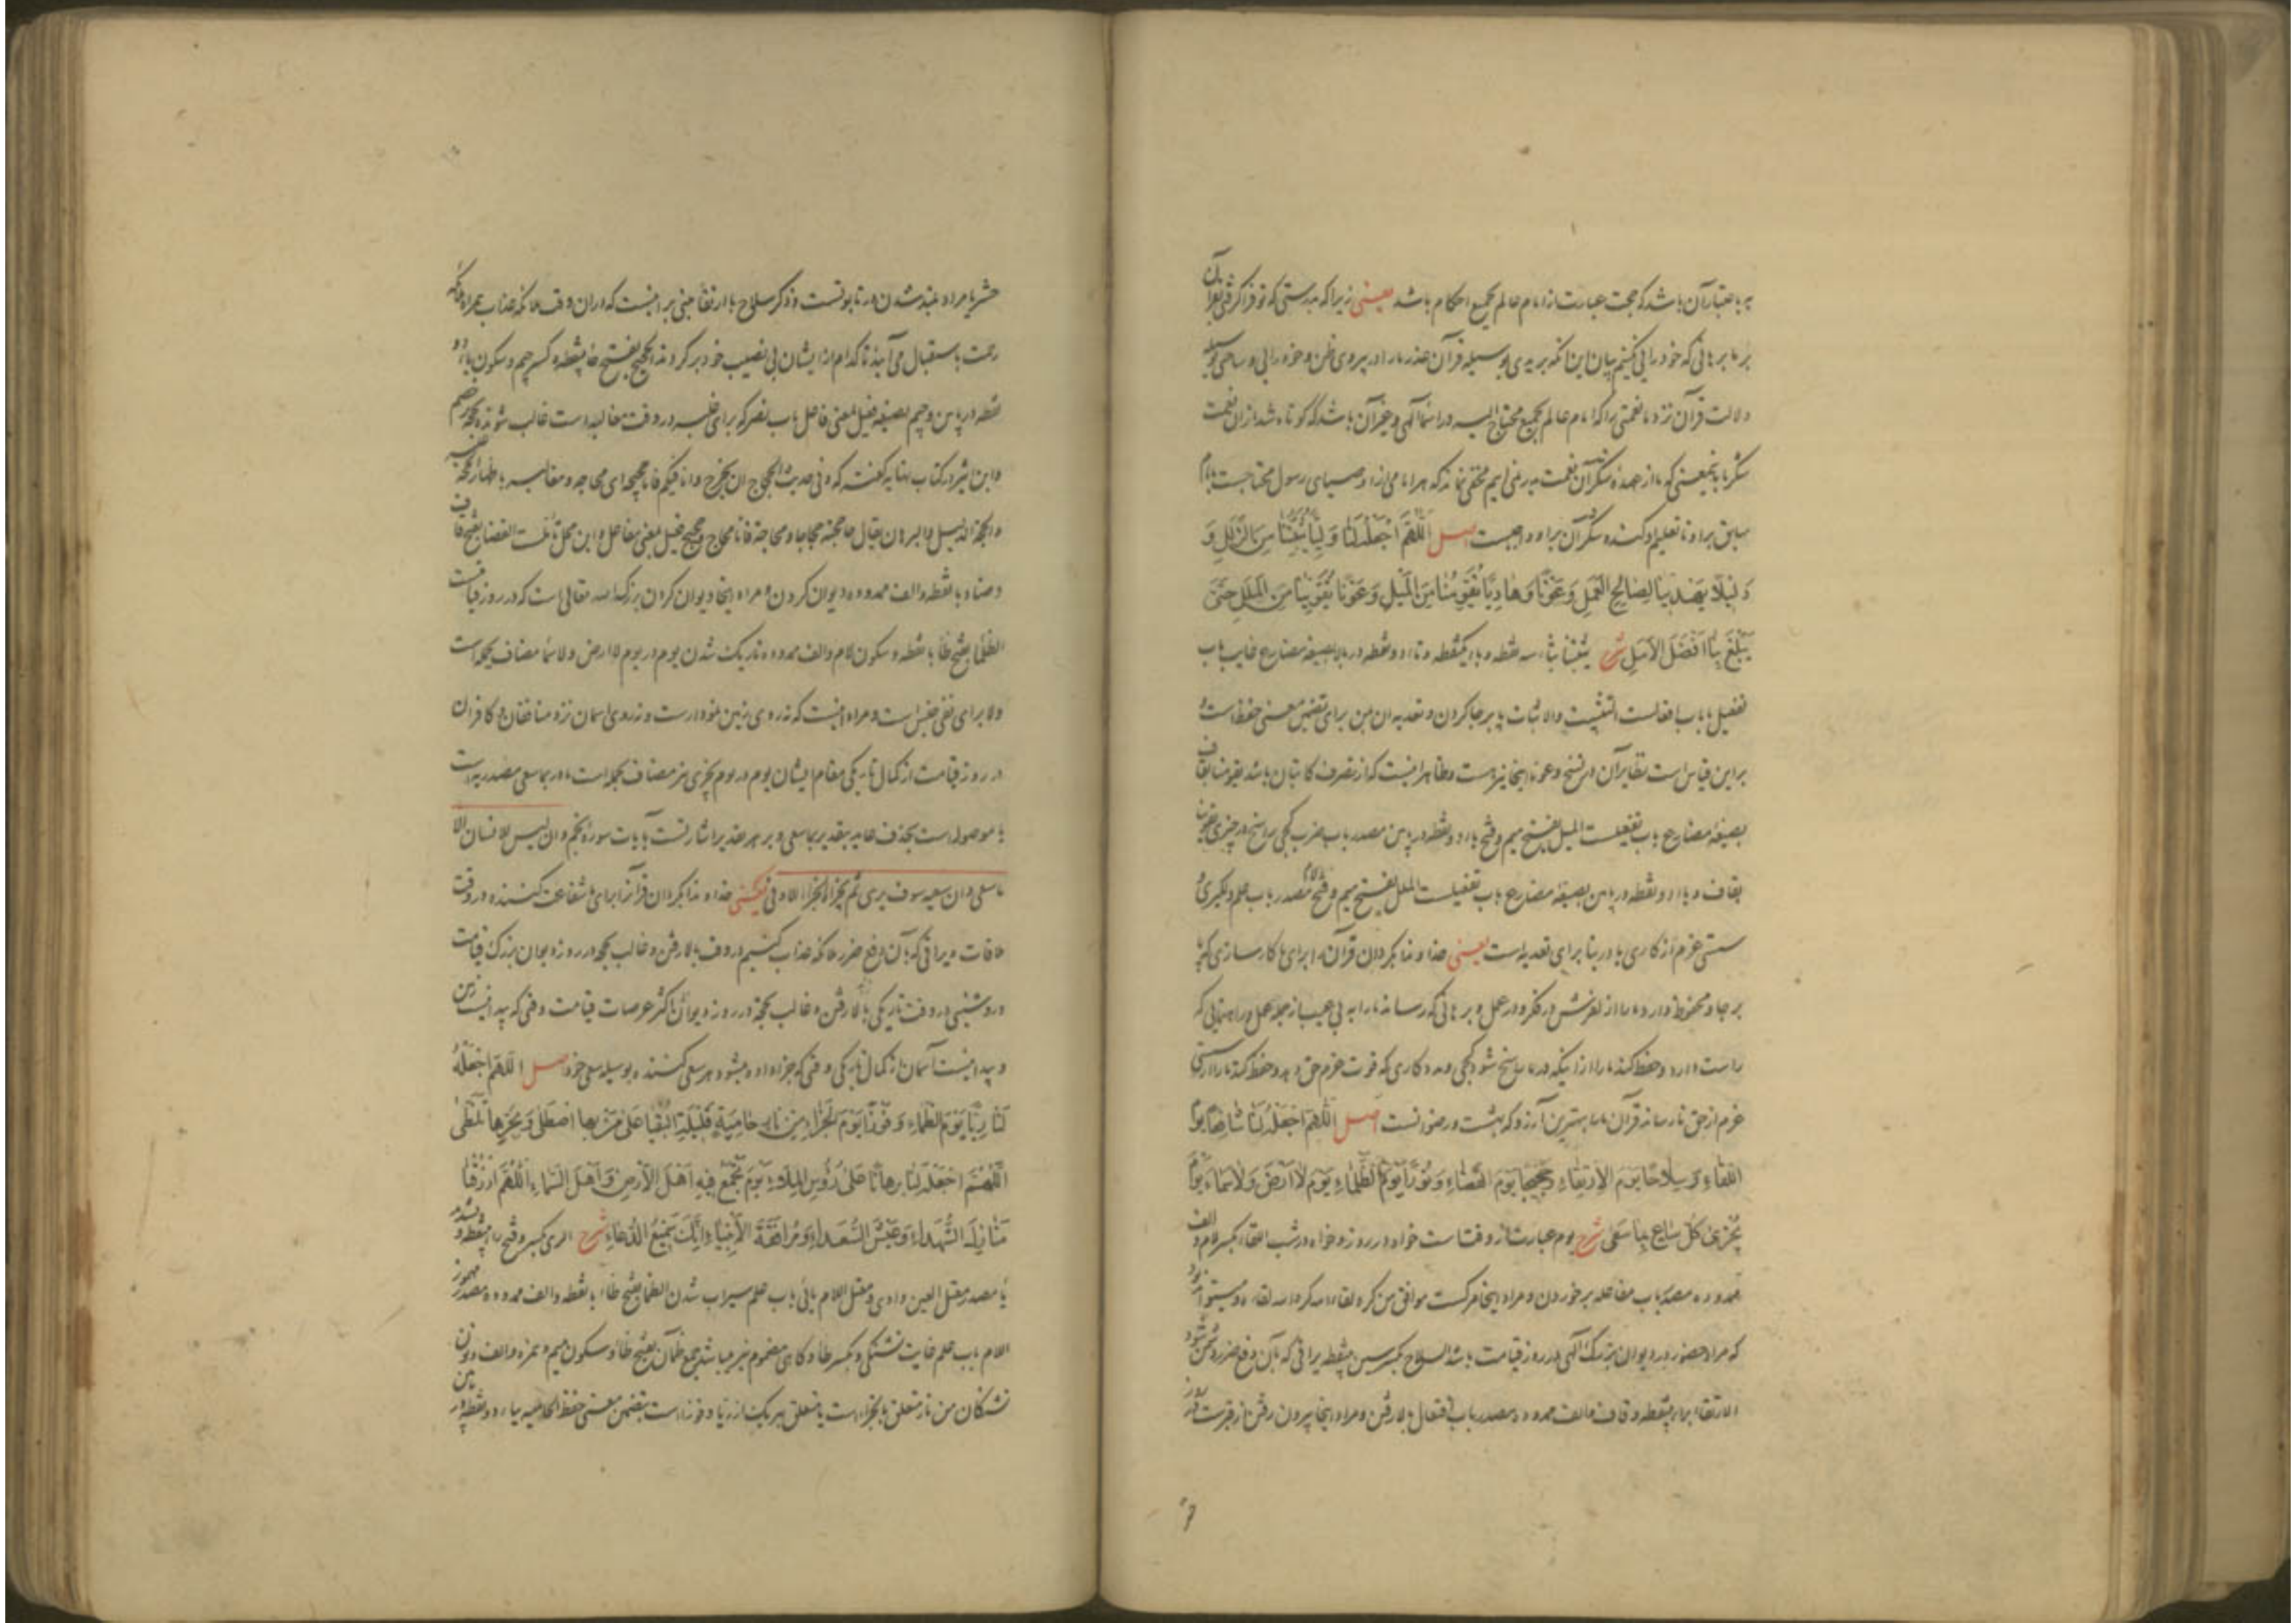 به باعتبار آن باشد که حجت عبارت از امام عالم بجمیع احکام باشد یعنی زیرا که بدرستی که تو فرا گرفتی بقرآن
بر ما برهانی که خود را بی
دلالت قرآن نزد ما نعمتی را که امام عالم بجمیع محتاج الیه و در اسماء الهی و غیر آن باشد که کوتاه شد از آن نعمت
شکر ما بمعنی که ما از عهدهٔ شکر آن نعمت بدر نمی آییم مخفی نماند که هر امامی از اوصیای رسول محتاجست بامام
سابق برا و تا تعلیم او کند و شکر آن برا و واجبست اصل اللهم اجعله لنا ولیا یثبتنا من الزلل و
دلیلا یهدینا لصالح العمل وعونا وهادیا یقومنا من المیل وعونا یقوینا من الملل حتی
یبلغ بنا افضل الامل شرح یثبتنا بثاء سه نقطه و باء یکنقطه و تاء دو نقطه در بالا بصیغهٔ مضارع غایب باب
تفعیل یا باب افعالست التثبیت والاثبات پا برجا کردن و تعدیه آن بمن برای تضمین معنی حفظ است و
براین قیاس است نظایر آن در نسخ وعونا اینجا نیز هست و ظاهر اینست که از تصرف کاتبان باشد یقومنا بقاف
بصیغهٔ مضارع باب تفعیلست المیل بفتح میم و فتح یاء دو نقطه در پایین مصدر باب ضرب کجی راسخ در چیزی یقوینا
بقاف و یاء دو نقطه در پایین بصیغهٔ مضارع باب تفعیلست الملل بفتح میم و فتح لام مصدر باب علم دلگیری و
سستی عزم از کاری با در بنا برای تعدیه است یعنی خداوندا بگردان قرآن را برای ما کارسازی که پا
برجا و محفوظ دارد ما را از لغزش در فکر و در عمل و برهانی که رساند ما را به بی عیب از جمله عمل و راهنمایی که
راست دارد و حفظ کند ما را از اینکه در ما راسخ شود کجی و مددکاری که قوت عزم حق دهد و حفظ کند ما را از سستی
عزم از حق تا رساند قرآن ما را بهترین آرزو که بهشت و رضوانست اصل اللهم اجعله لنا شافعا یوم
اللقاء وسلاحا یوم الارتقاء وحجیجا یوم القضاء ونورا یوم الظلماء یوم لا ارض ولا سماء یوم
یجزی کل ساع بما سعی شرح یوم عبارت از وقتست خواه در روز و خواه در شب اللقاء بکسر لام و الف
ممدوده مصدر باب مفاعله برخوردن و مراد اینجا مرگست موافق من کره لقاء الله کره الله لقاءه و میتواند بود
که مراد حضور در دیوان بزرگ الهی در روز قیامت باشد السلاح بکسر سین بینقطه یراقی که بآن دفع ضرر دشمن شود
الارتقاء براء بینقطه و قاف و الف ممدوده مصدر باب افتعال بالا رفتن و مراد اینجا بیرون رفتن از قبرست در روز
حشر یا مراد بلند شدن در تابوتست و ذکر سلاح با ارتقا مبنی بر اینست که در آن وقت ملائکه عذاب همراه ملائکه
رحمت باستقبال می آیند تا کدام از ایشان بی نصیب خود برگردند الحجیج بفتح حاء بینقطه و کسر جیم و سکون یاء دو
نقطه در پایین و جیم بصیغهٔ فعیل بمعنی فاعل باب نصر که برای غلبه در وقت مغالبه است غالب شونده بحجه بر خصم
وابن اثیر در کتاب نهایه گفته که وفی حدیث الدجال ان یخرج وانا فیکم فانا حجیجه ای محاجه ومغالبه باظهار الحجه علیه
والحجة الدلیل والبرهان یقال حاججته حجاجا ومحاجة فانا محاج وحجیج فعیل بمعنی مفاعل و این محل تأمل است القضاء بفتح قاف
وضاد بانقطه والف ممدوده دیوان کردن و مراد اینجا دیوان کردن بزرگ الله تعالی است که در روز قیامتست
الظلماء بفتح ظاء بانقطه و سکون لام و الف ممدوده تاریک شدن یوم در یوم لا ارض ولا سماء مضاف بجمله است
ولا برای نفی جنس است و مراد اینست که نه روی زمین نمودارست و نه روی اسمان نزد منافقان و کافران
در روز قیامت از کمال تاریکی مقام ایشان یوم در یوم یجزی نیز مضاف بجمله است ما در بما سعی مصدریه است
یا موصوله است بحذف عاید بتقدیر بما سعی و بر هر تقدیر اشارتست بآیات سورهٔ نجم وان لیس للانسان الا
ما سعی وان سعیه سوف یری ثم یجزاه الجزاء الاوفی یعنی خداوندا بگردان قرآن را برای ما شفاعت کننده در وقت
ملاقات و یراقی که بآن دفع ضرر ملائکه عذاب کنیم در وقت بالا رفتن و غالب بحجه در روز دیوان بزرگ قیامت
و روشنیی در وقت تاریکی بالا رفتن و غالب بحجة در روز دیوان اکثر عرصات قیامت وقتی که پیدا نیست زمین
و پیدا نیست آسمان از کمال تاریکی وقتی که جزا داده میشود هر سعی کننده بوسیله سعی خود اصل اللهم اجعله
لنا ریا یوم الظماء وفوزا یوم الجزاء من نار حامیة قلیلة البقیا علی من بها اصطلی وبحرها تلظی
اللهم اجعله لنا برهانا علی رؤس الملاء یوم یجمع فیه اهل الارض واهل السماء اللهم ارزقنا
منازل الشهداء وعیش السعداء ومرافقة الانبیاء انک سمیع الدعاء شرح الری بکسر و فتح راء بینقطه و تشدید
یا مصدر معتل العین واوی و معتل اللام یایی باب علم سیراب شدن الظما بفتح ظاء بانقطه و الف ممدوده مصدر مهموز
اللام باب علم غایت تشنگی و بکسر ظا و گاهی مضموم نیز میباشد جمع ظمآن بفتح ظا و سکون میم و همزه و الف و نون
تشنگان من نار متعلق بالجزاء است یا متعلق بهر یک از ریا و فوزا است بتضمن معنی حفظ الحامیه بیاء دو نقطه در پایین